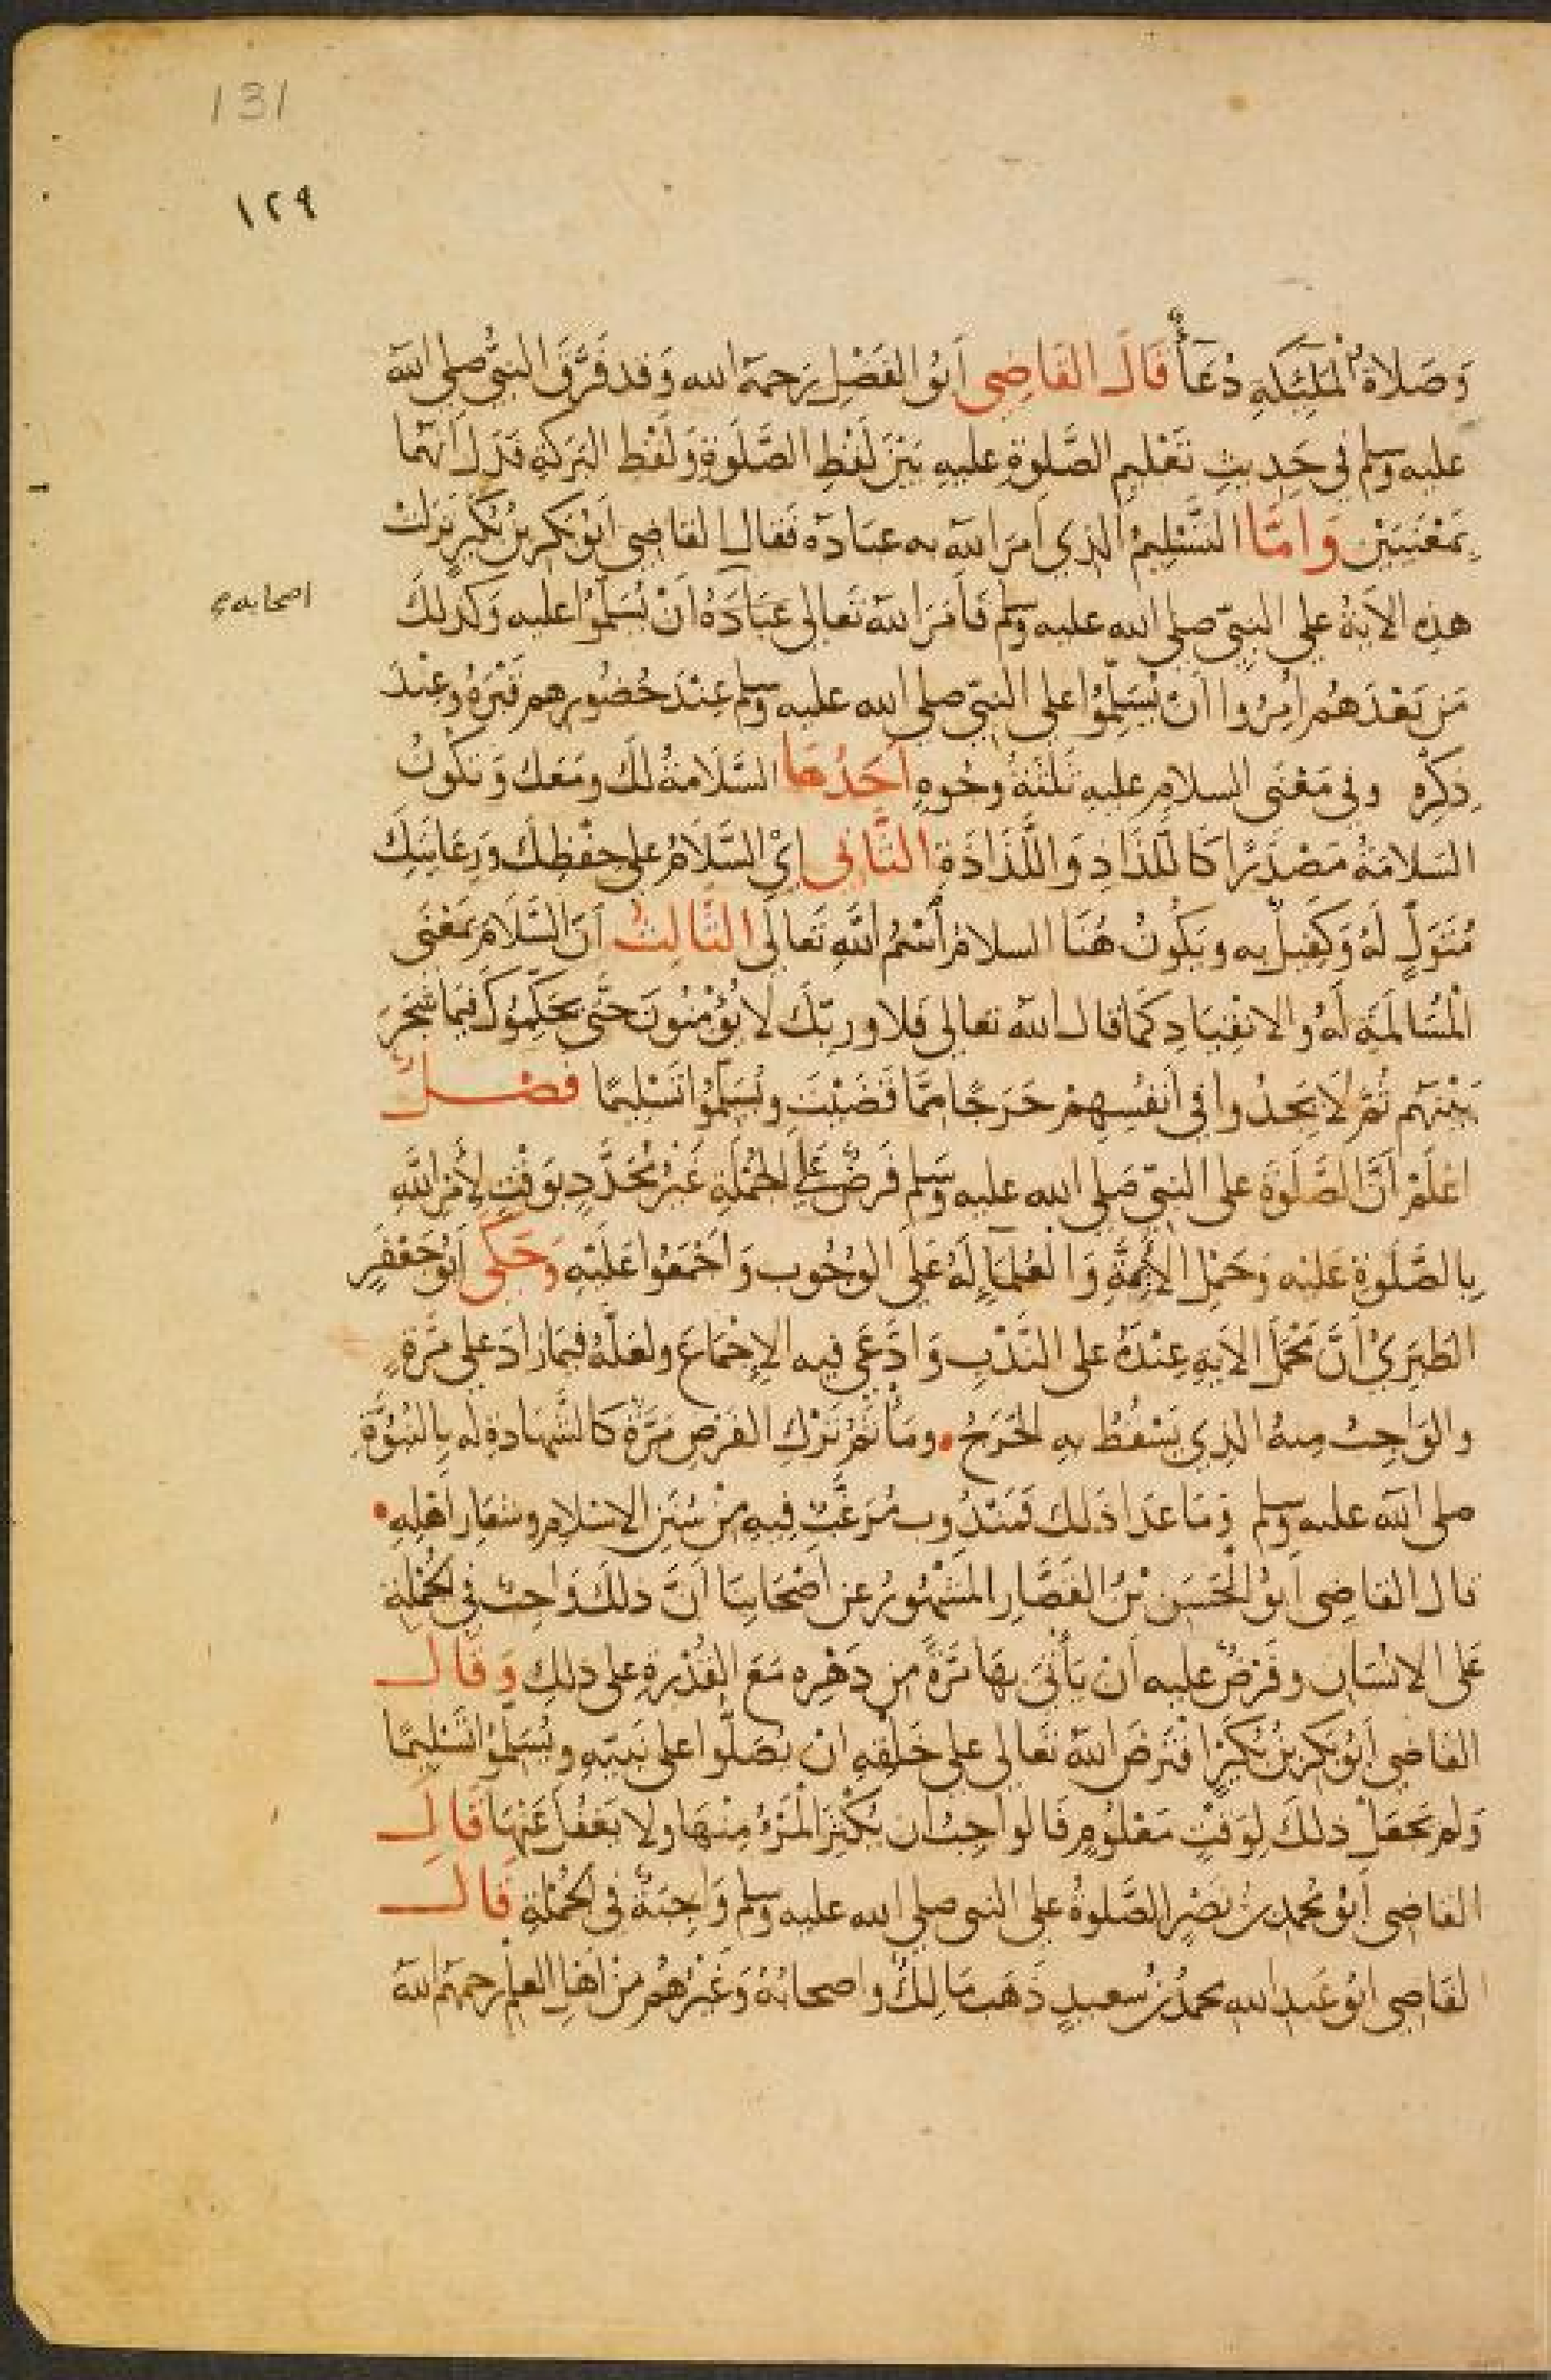 131
١٢٩
وَصَلَاةُ الْمَلَئِكَةِ دُعَآءٌ قَالَ القَاضِى أَبُو الفَضْلِ رَحمَهُ الله وَقد فَرَّقَ النبىُّ صلى الله
عليه وسلم فى حَدِيثِ تَعْلِيمِ الصَّلوةِ عليهِ بَيْنَ لَفْظِ الصَّلَوةِ وَلَفْظ البَرَكَةِ فَدَلَّ انّهما
بِمَعْنَيَيْنِ وَامَّا التَّسْلِيمُ الذِي اَمَرَ اللهُ به عبَادَه فَقال القاضِى أبُو بَكرِ بنُ بُكَيْرٍ نَزَلتْ
هذِه الآيَةُ على النبىّ صلى الله عليه وسلم فَأمَرَ اللهُ تَعالى عبَادَهُ اَنْ يُسَلّمُوا عليه وَكَذلِكَ
اصحابه
مَن بَعْدَهُم اُمِرُوا اَنْ يُسَلِّمُوا على النبىّ صلى الله عليه وسلم عِنْدَ حُضُورِهم قَبْرَهُ وَعِنْدَ
ذِكْرِه وفى مَعْنَى السلامِ عليهِ ثَلثَةُ وجُوهٍ اَحَدُهَا السَّلَامةُ لكَ ومَعَك وَتكُونُ
السَلامَةُ مَصْدَرًا كَاللّذَاذِ وَاللَّذَاذَةِ الثَّانِى اىْ السَّلَامُ على حفْظِكَ وَرِعَايَتِكَ
مُتَوَلٍّ لَهُ وَكَفِيلٌ به ويَكُونُ هُنَا السلامُ اسْمُ اللهِ تَعالَى الثَّالِثُ اَنَ السَّلَامَ بمَعْنَى
الْمُسَالَمَةِ لَهُ والانْقِيَادِ كَمَا قال اللهُ تعالى فَلا ورَبّكَ لا يُؤْمِنُونَ حَتَّى يُحَكّمُوكَ فيمَا شَجَرَ
بَيْنَهُم ثُمَّ لَا يَجِدُوا فى اَنفُسِهِمْ حَرَجًا مِمَّا قَضَيْتَ ويُسَلّمُوا تَسْلِيمًا فصْلٌ
اعْلَمْ اَنَّ الصَّلَوةَ على النبىّ صَلى الله عليه وسَلم فَرْضٌ عَلَى الجُمْلَةِ غَيْرُ مُحَدَّدٍ بوَقْتٍ لأَمْرِ اللهِ
بِالصَّلَوةِ عَليْه وَحَمْلِ الأَئِمَّةِ وَالعُلمَاءِ لَهُ عَلَى الوُجُوب وَاَجْمَعُوا عَلَيْهِ وَحَكَى اَبُو جَعْفَرٍ
الطَبَرِىُّ اَنَّ مَحْمَلَ الآيَةِ عِنْدَهُ على النَّدْبِ وَادَّعَى فيه الإِجْمَاعَ ولعَلَّهُ فيمَا زَادَ على مَرَّةٍ
والوَاجِبُ مِنهُ الذِي يَسْقُطُ بهِ الحَرَجُ ومَأْثَمُ تَرْكِ الفَرْضِ مَرَّةً كَالشَّهَادةِ لَه بِالنُبُوَّةِ
صلى الله عليه وسلم وَمَا عَدَا ذَلك فَمَنْدُوب مُرَغَّبٌ فِيهِ مِنْ سُنَنِ الاسْلامِ وشعَارِ اَهْلِهِ
قال القاضِى اَبُو الْحَسَن بْنُ القَصَّارِ المَشْهُورُ عن اَصْحَابِنَا اَنَّ ذلكَ وَاجِبٌ فى الجُمْلةِ
عَلى الانْسَانِ وفَرْضٌ عليه اَن يَأْتىَ بهَا مَرَّةً مِن دَهْرِه مَعَ القُدْرةِ على ذلِك وَقَال
القاضى اَبُو بَكرِ بنُ بُكَيْرٍ افْتَرَضَ اللهُ تعالى على خَلْقِهِ ان يُصَلّوا على نَبيّهِ ويُسَلّمُوا تَسْلِيمًا
وَلم يَجْعَلْ ذلكَ لِوَقْتٍ مَعْلُومٍ فَالواجبُ ان يُكْثِرَ المَرْءُ مِنْهَا ولا يَغْفُلَ عَنْهَا قَالَ
القاضِى اَبُو مُحمدِ بنُ نَصْرٍ الصَّلوةُ على النبى صلى الله عليه وسلم وَاجِبَةٌ فى الجُمْلةِ قَالَ
القَاضِى ابُو عَبدِ اللهِ محمدُ بنُ سعيدٍ ذَهَبَ مَالِكٌ واصحابُهُ وَغَيْرُهُم مِن اَهْلِ العِلْمِ رحمهُم اللهُ